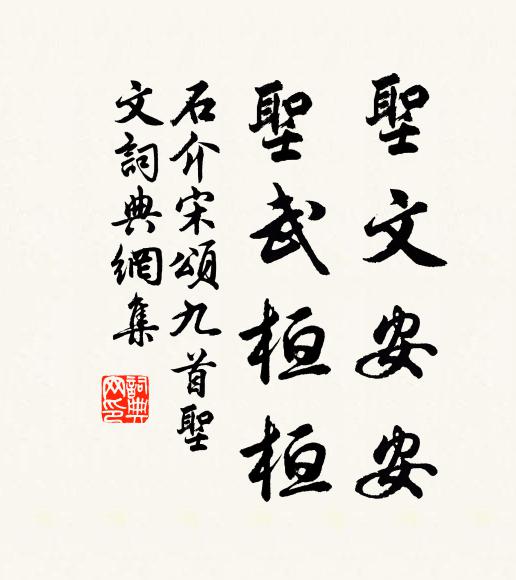 聖文安安
聖武桓桓
石介宋頌九首聖
文詞典網集
詞典
网印